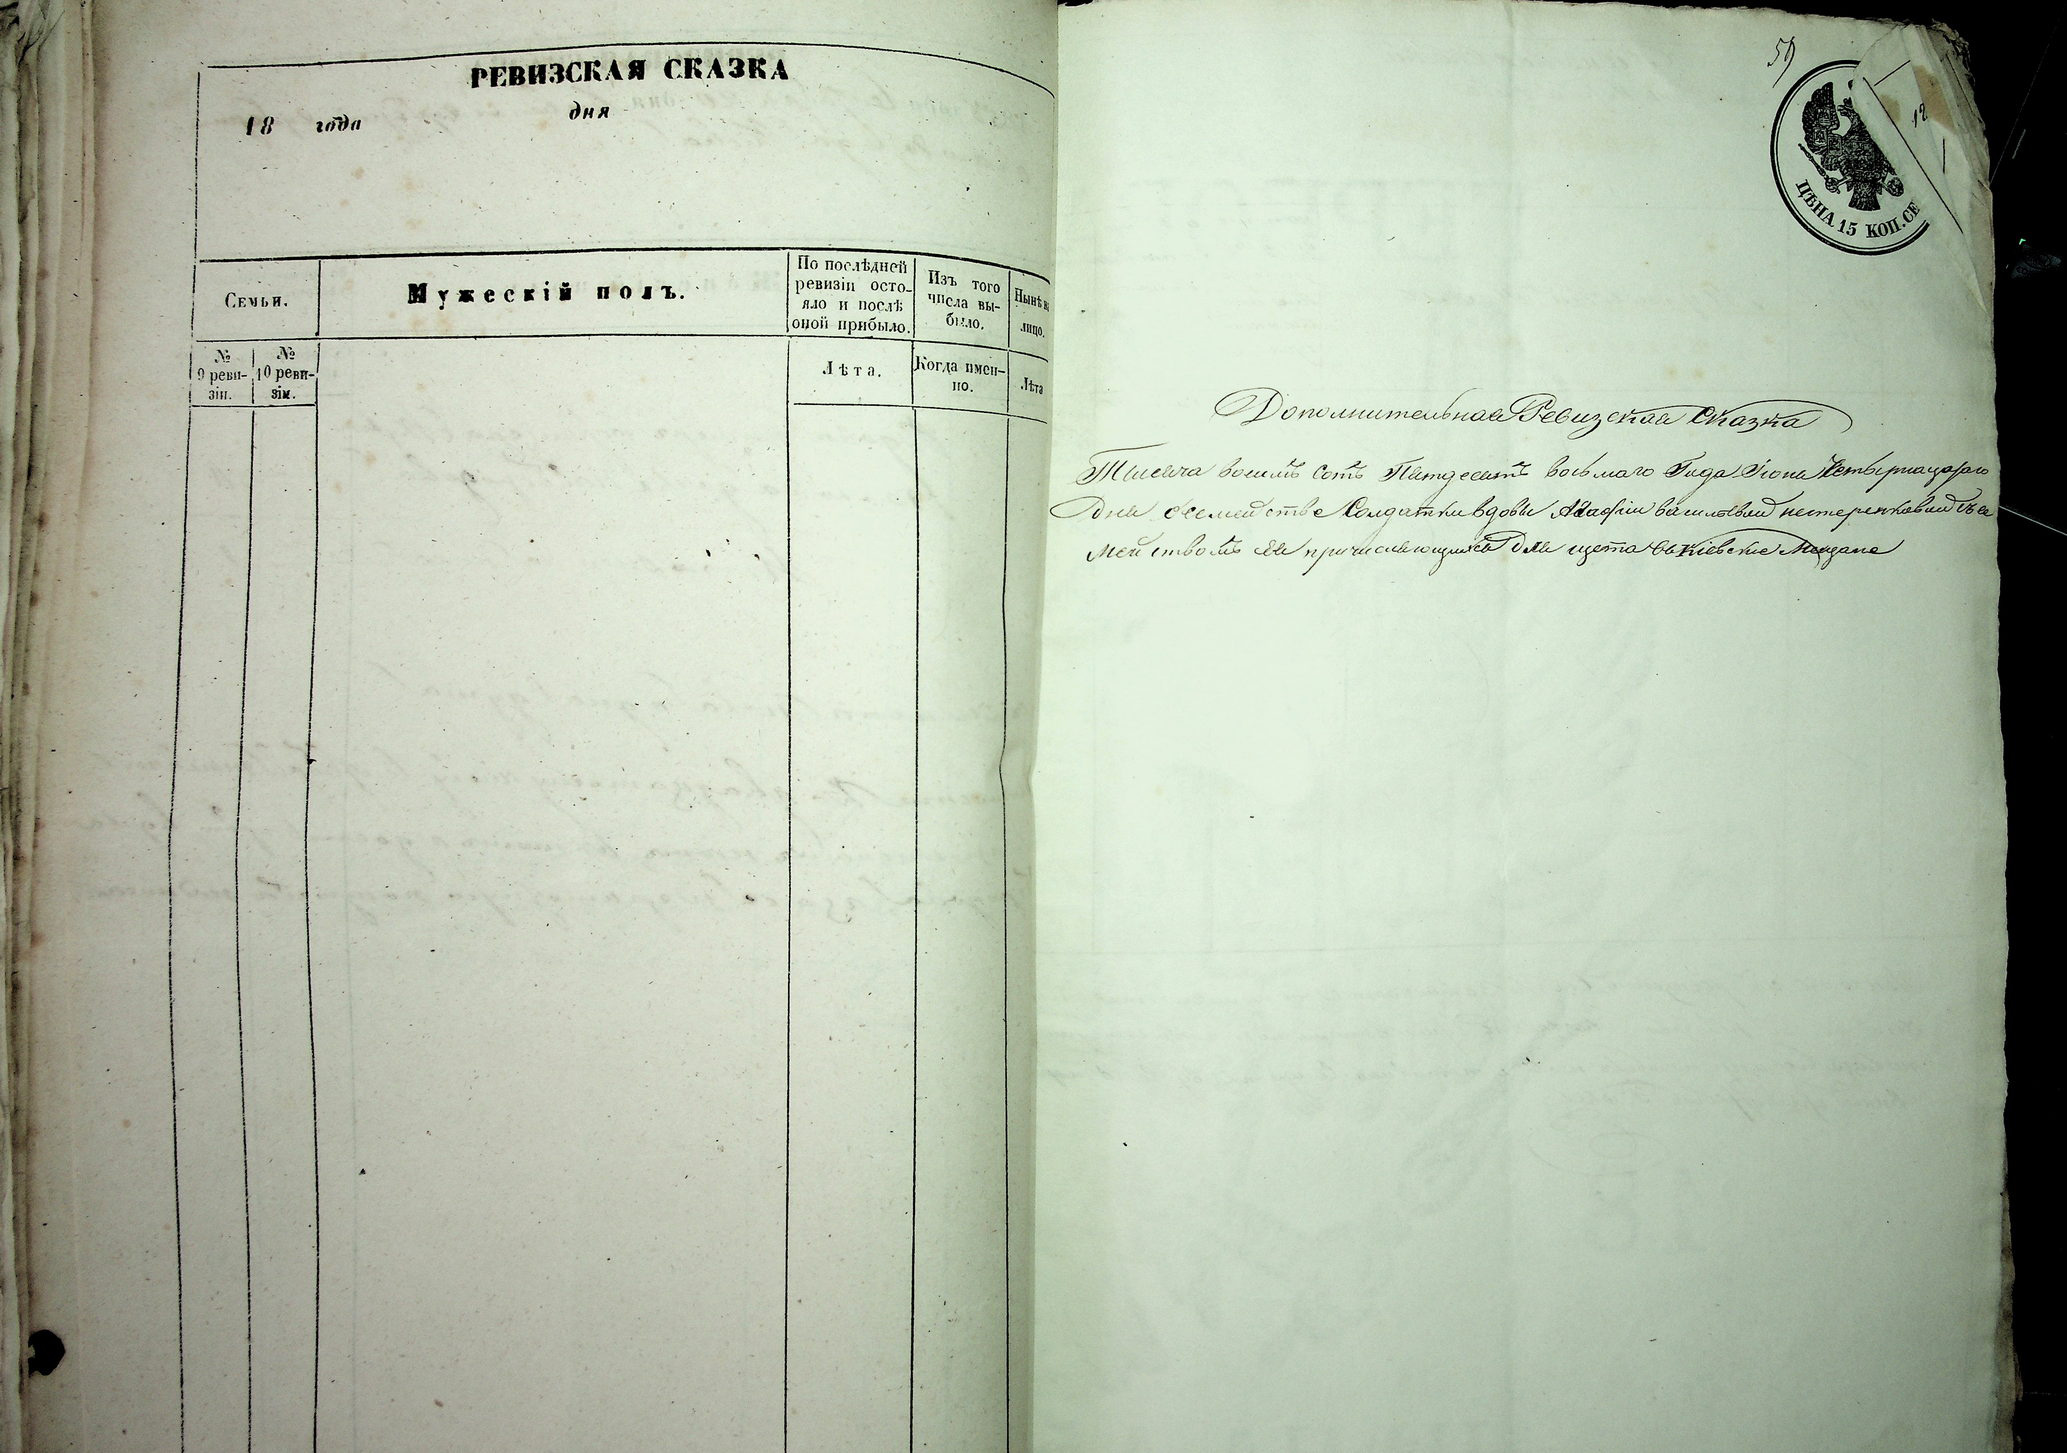 РЕВИЗСКАЯ СКАЗКА
18 года дня
Семьи.
Мужескій полъ.
По послѣдней
ревизіи осто-
яло и послѣ
оной прибыло.
Изъ того
числа вы-
было.
Нынѣ на
лицо.
№
9 реви-
зіи.
№
10 реви-
зіи.
Лѣта.
Когда имен-
но.
Лѣта
59
ЦѢНА 15 КОП. СЕ
12
Дополнительная Ревизская Сказка
Тысяча восимъ сотъ Пятдесятъ восьмаго Года Іюня Четырнацатаго
Дня о семействе Солдатки вдовы Агафии васильевой нестеренковой съ се
мействомъ ея причисляющихся для щета въ киевские Мещане